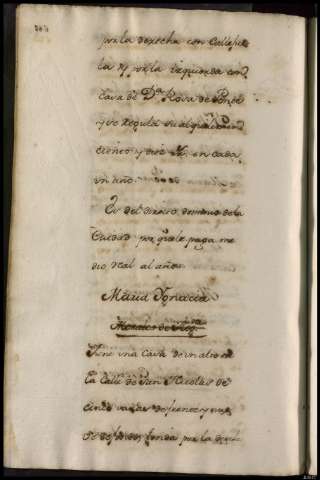 por la derecha con Callejue
la y por la izquierda con
Casa de D.ª Rosa de Ponce
y se regula su alquiler en
ciento y diez r.s en cada
un año
Es del directo dominio de la
Ciudad por q.e le paga me
dio real al año
Maria Ygnacia
Morales de Vega
Tiene una Casa de un alto en
La Calle de San Nicolas de
cinco varas de frente y nue
be de fondo, linda por la dere